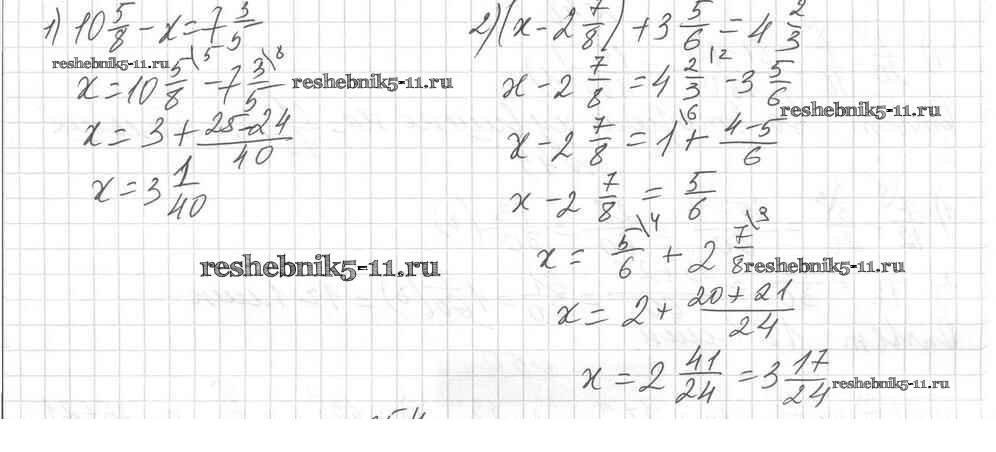 1) 10 5/8 - x = 7 3/5
reshebnik5-11.ru
x = 10 5/8 \5 - 7 3/5 \8
reshebnik5-11.ru
x = 3 + 25-24/40
x = 3 1/40
reshebnik5-11.ru
2) (x - 2 7/8) + 3 5/6 = 4 2/3
x - 2 7/8 = 4 2/3 |2 - 3 5/6
reshebnik5-11.ru
x - 2 7/8 = 1 + 4-5/6 \6
x - 2 7/8 = 5/6
x = 5/6 \4 + 2 7/8 \3
reshebnik5-11.ru
x = 2 + 20+21/24
x = 2 41/24 = 3 17/24
reshebnik5-11.ru